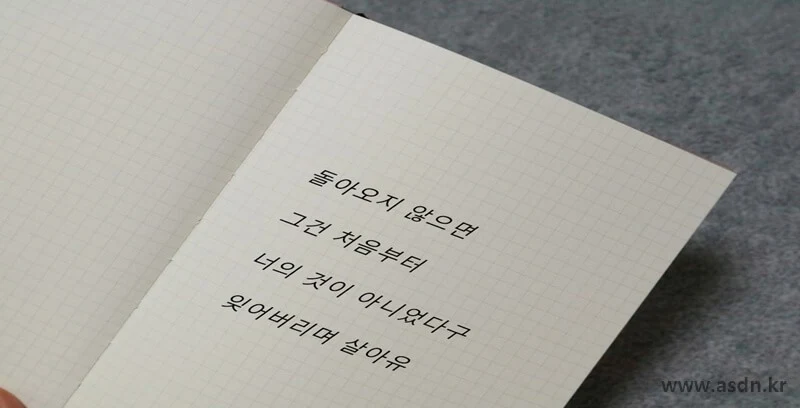 돌아오지 않으면
그건 처음부터
너의 것이 아니었다구
잊어버리며 살아유
www.asdn.kr